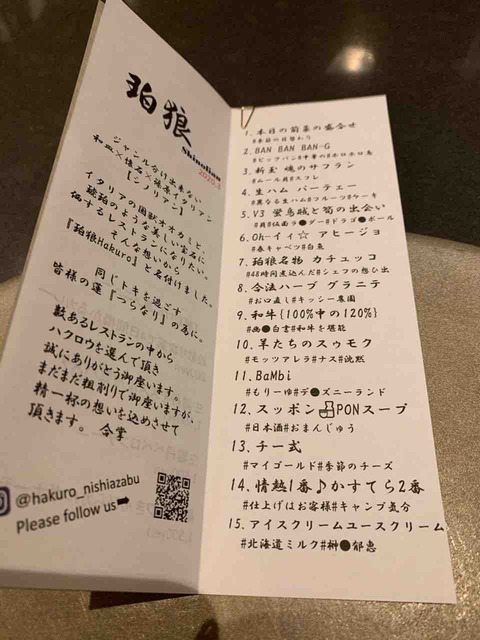 珀狼
Shinolian
2020.3
ジャンル分け出来ない
和皿×懐石×味喜イタリアン
【シノリアン】
イタリアの国獣オオカミと、
琥珀のような美しい名に
価するレストランになりたい。
そんな想いから
『珀狼Hakuro』と名付けました。
同じトキを過ごす
皆様の運『つらなり』の為に。
数あるレストランの中から
ハクロウを選んで頂き
誠にありがとう御座います。
まだまだ粗削りで御座いますが、
精一杯の想いを込めさせて
頂きます。 合掌
@hakuro_nishiazabu
Please follow us➡
1. 本日の前菜の盛合せ
#季節の日替わり
2. BAN BAN BAN-G
#ビッグバン#中華の#ホロホロ鳥
3. 新玉 魂のサフラン
#ムール貝#スフレ
4. 生ハム パーテェー
#異なる生ハム#フルーツ#ケーキ
5. V3 蛍烏賊と筍の出会い
#貝#仮面ラ●ダー#ドラゴ●ボール
6. Oh-イィ☆ アヒージョ
#春キャベツ#白魚
7. 珀狼名物 カチュッコ
#48時間煮込んだ#シェフの想ひ出
8. 合法ハーブ グラニテ
#お口直し#キッシー農園
9. 和牛{100%中の120%}
#幽●白書#和牛を堪能
10. 羊たちのスゥモク
#モッツアレラ#ナス#沈黙
11. BaMbi
#もりーゆ#デ●ズニーランド
12. スッポン🍶PONスープ
#日本酒#おまんじゅう
13. チー式
#マイゴールド#季節のチーズ
14. 情熱1番♪かすてら2番
#仕上げはお客様#キャンプ気分
15. アイスクリームユースクリーム
#北海道ミルク#榊●郁恵